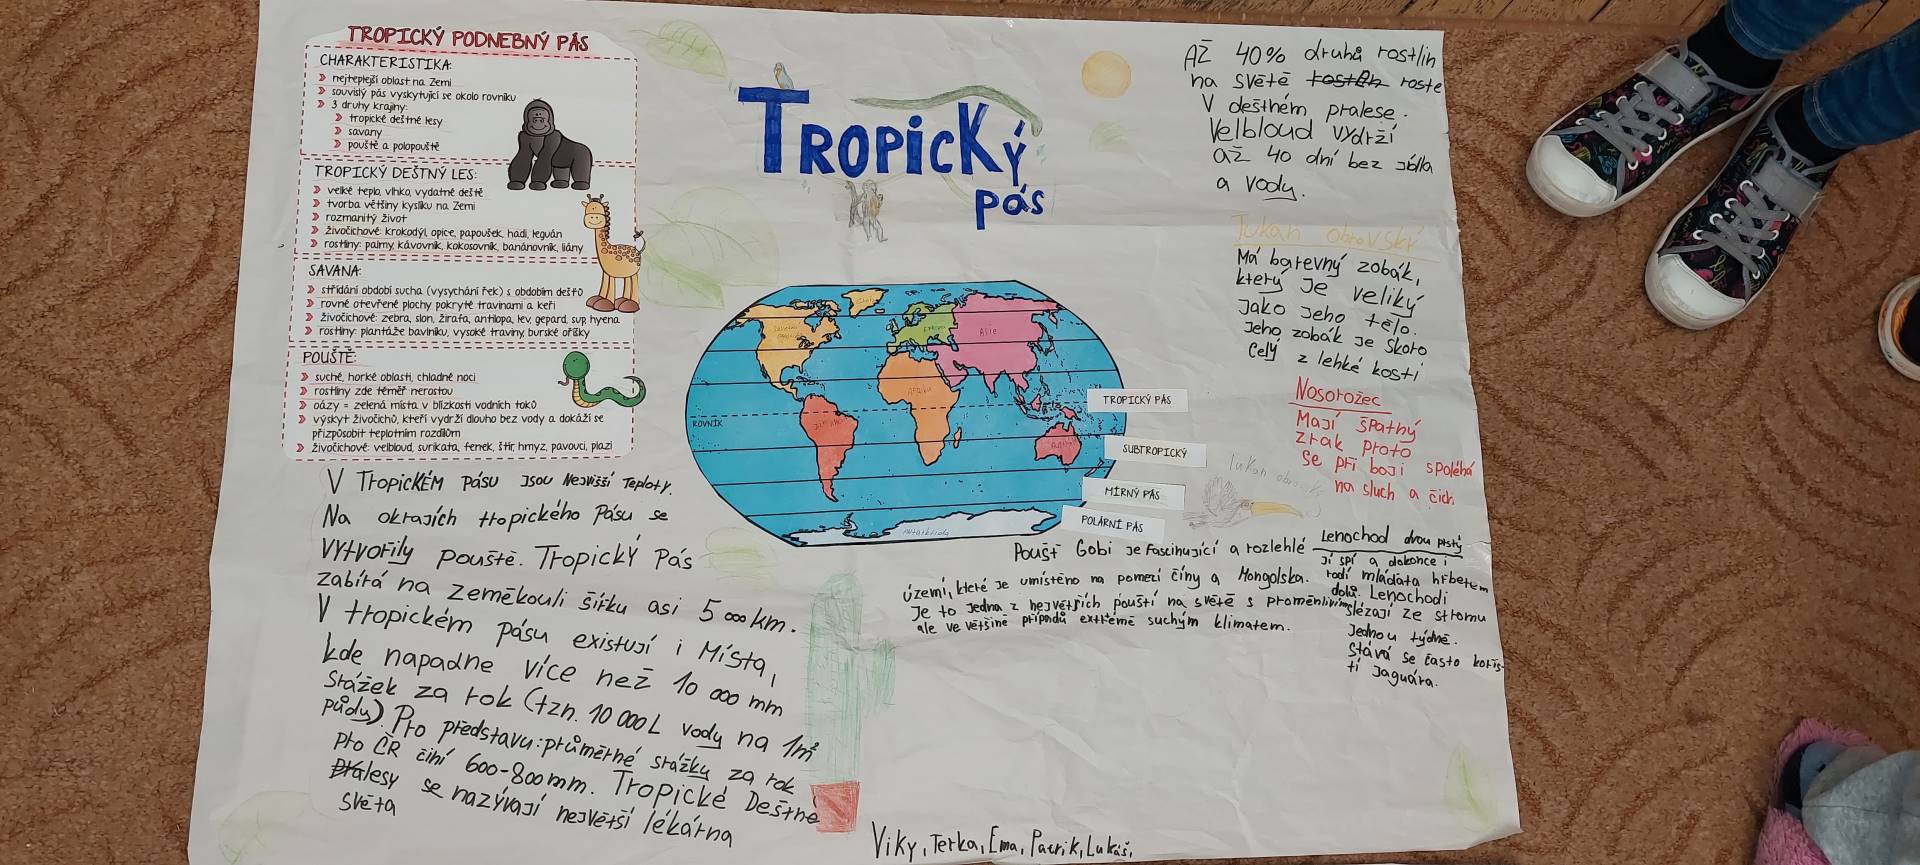 TROPICKÝ PODNEBNÝ PÁS
CHARAKTERISTIKA:
nejteplejší oblast na Zemi
souvislý pás vyskytující se okolo rovníku
3 druhy krajiny:
tropické deštné lesy
savany
pouště a polopouště
TROPICKÝ DEŠTNÝ LES:
velké teplo, vlhko, vydatné deště
tvorba většiny kyslíku na Zemi
rozmanitý život
živočichové: krokodýl, opice, papoušek, hadi, leguán
rostliny: palmy, kávovník, kokosovník, banánovník, liány
SAVANA:
střídání období sucha (vysychání řek) s obdobím dešťů
rovné otevřené plochy pokryté travinami a keři
živočichové: zebra, slon, žirafa, antilopa, lev, gepard, sup, hyena
rostliny: plantáže bavlníku, vysoké traviny, burské oříšky
POUŠTĚ:
suché, horké oblasti, chladné noci
rostliny zde téměř nerostou
oázy = zelená místa v blízkosti vodních toků
výskyt živočichů, kteří vydrží dlouho bez vody a dokáží se
přizpůsobit teplotním rozdílům
živočichové: velbloud, surikata, fenek, štír, hmyz, pavouci, plazi
V TropicKÉM Pásu jsou Nejvišší Teploty.
Na okrajích tropického Pásu se
vytvořily pouště. Tropický Pás
zabírá na zeměkouli šířku asi 5 000 km.
V tropickém pásu existují i Místa,
kde napadne více než 10 000 mm
srážek za rok (tzn. 10 000L vody na 1m²
půdy). Pro představu: průměrné srážky za rok
pro ČR činí 600-800mm. Tropické Deštné
Pralesy se nazývají největší lékárna
světa
Tropický
pás
ROVNÍK
Asie
Afrika
Antarktida
TROPICKÝ PÁS
SUBTROPICKÝ
MÍRNÝ PÁS
POLÁRNÍ PÁS
AŽ 40% druhů rostlin
na světě rostlin roste
V deštném pralese.
Velbloud vydrží
až 40 dní bez jídla
a vody.
Tukan obrovský
Má barevný zobák,
který je veliký
jako jeho tělo.
Jeho zobák je skoro
celý z lehké kosti
Nosorožec
Mají špatný
zrak proto
se při boji spoléhá
na sluch a čich
tukan obrovský
Lenochod dvou prstý
jí spí a dokonce i
rodí mláďata hřbetem
dolů. Lenochodi
slézají ze stromu
jednou týdně.
stává se často kořis-
tí jaguára.
Poušť Gobi je fascinující a rozlehlé
území, které je umístěno na pomezí číny a Mongolska.
Je to jedna z největších pouští na světě s proměnlivým
ale ve většině případů extrémě suchým klimatem.
Viky, Terka, Ema, Patrik, Lukáš,